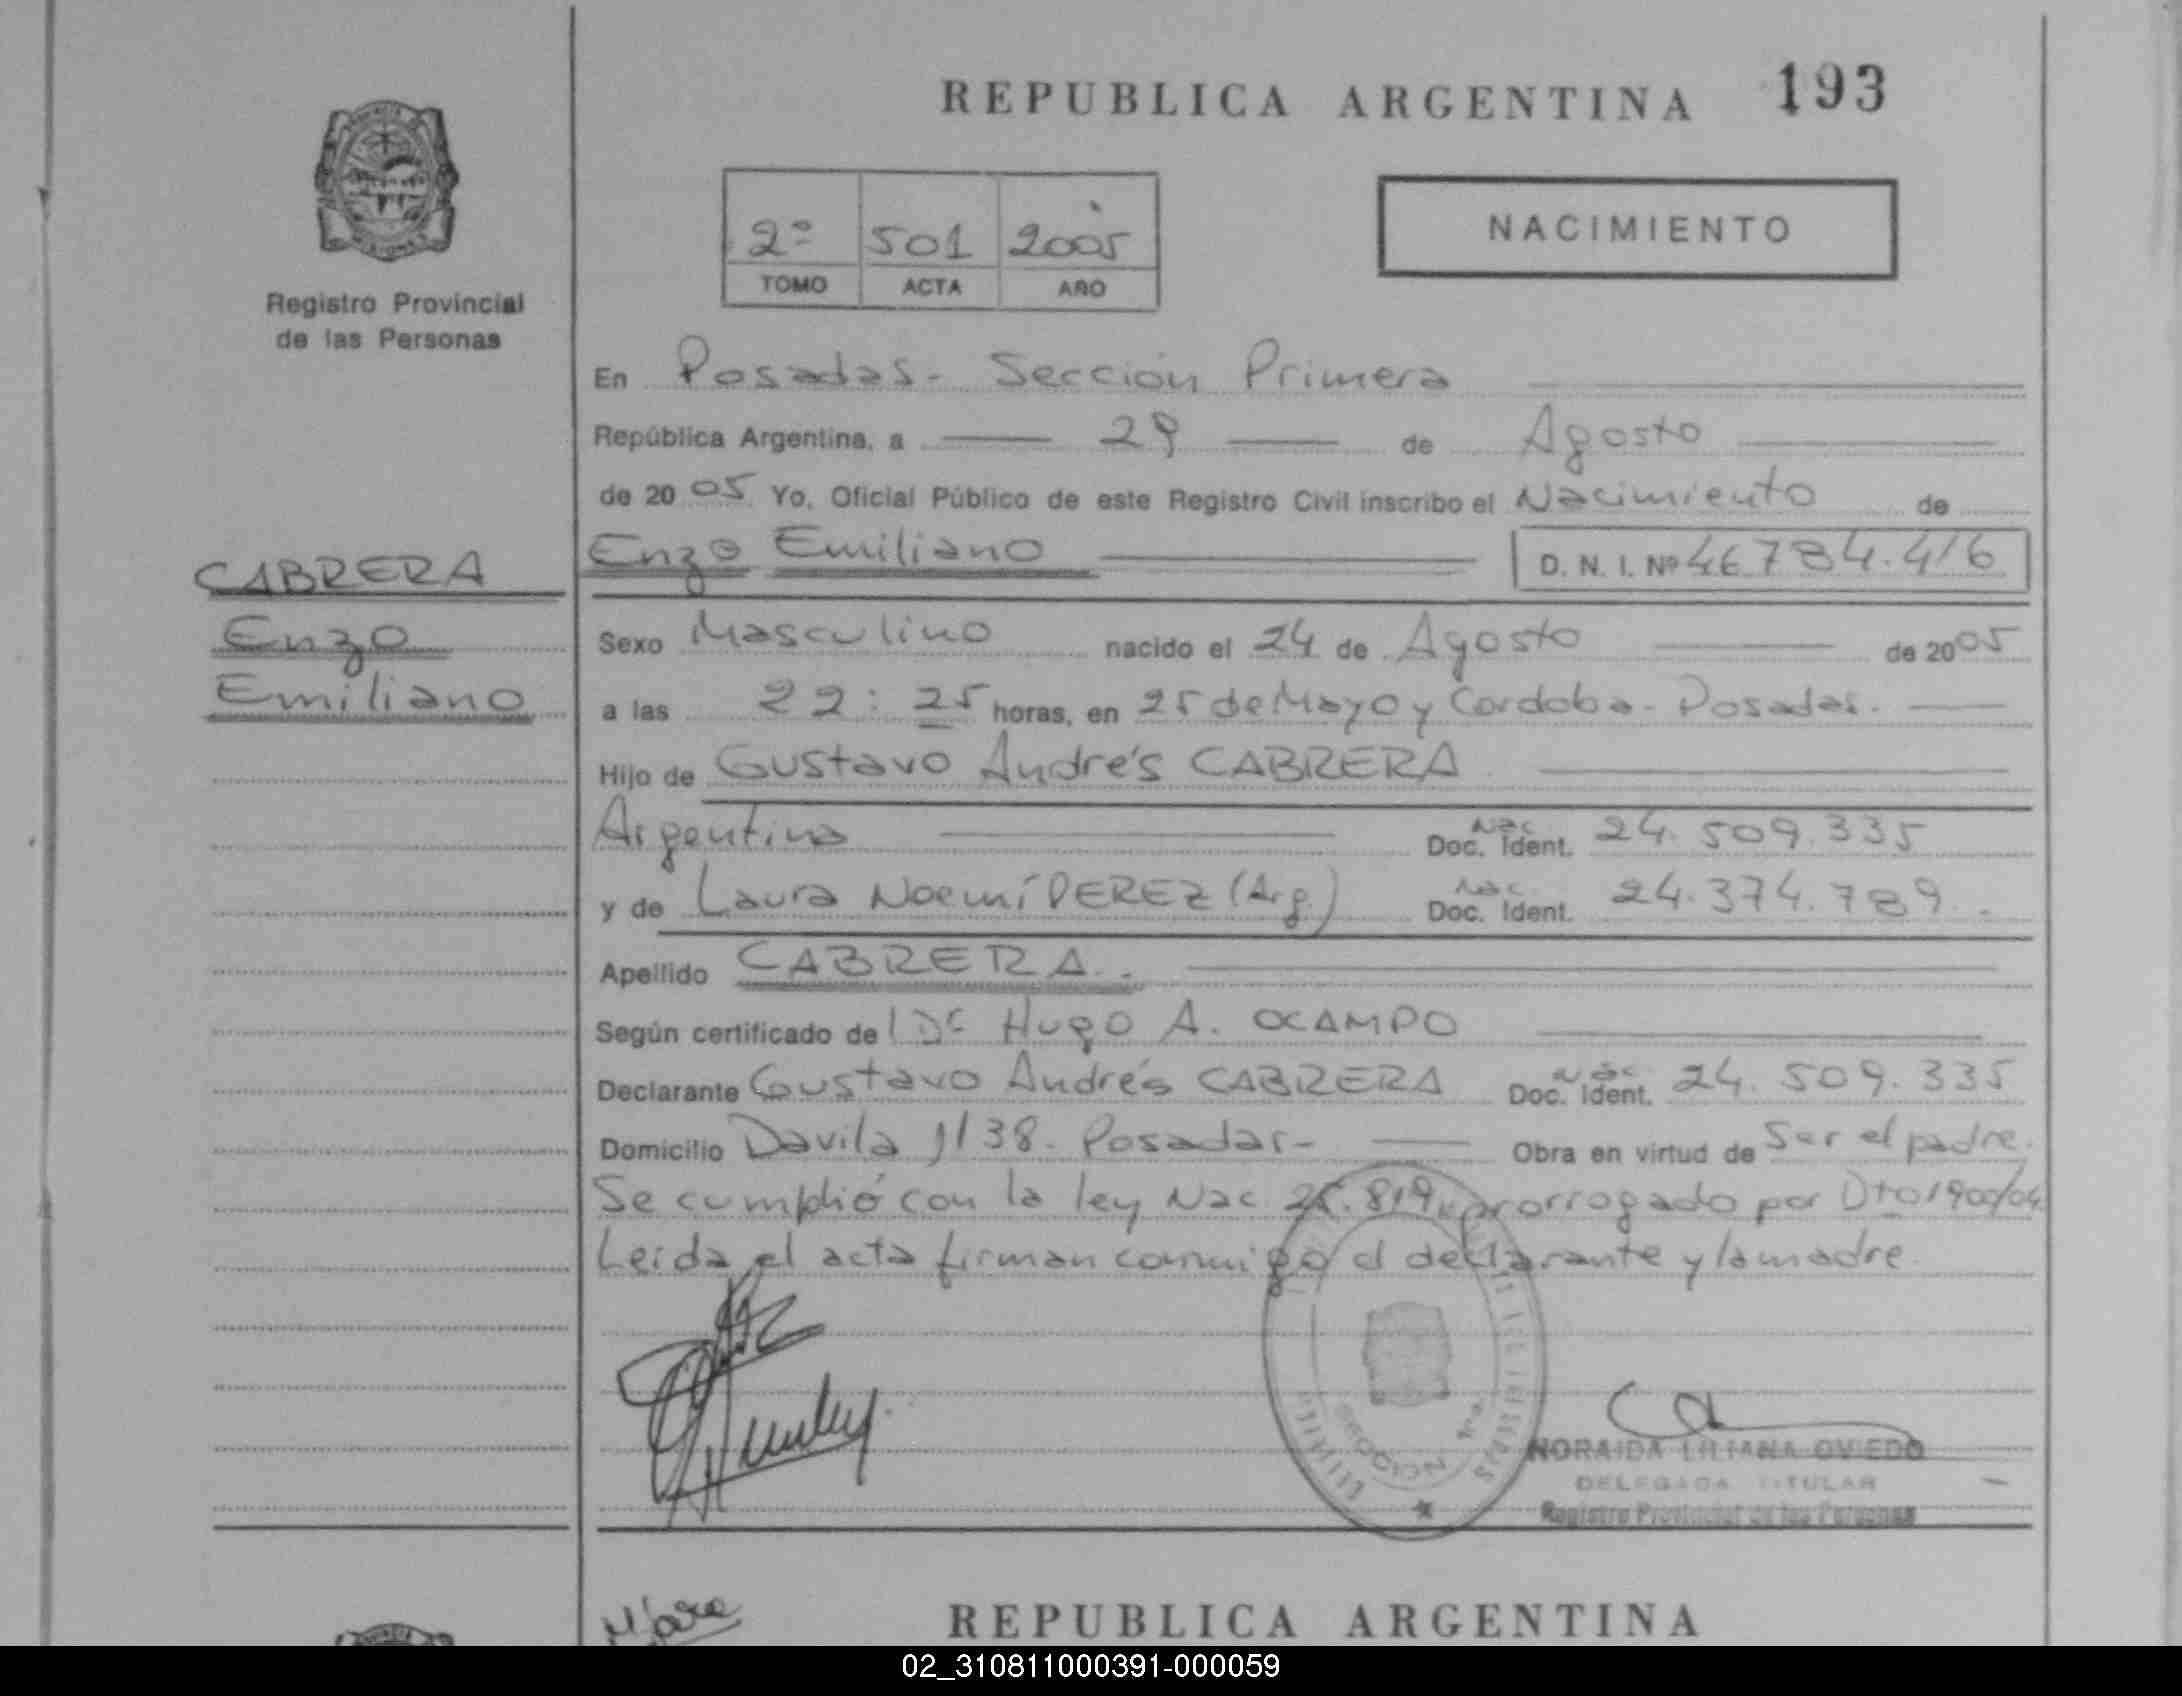 REPUBLICA ARGENTINA 193
2º 501 2005
TOMO ACTA AÑO
NACIMIENTO
Registro Provincial
de las Personas
En Posadas - Sección Primera
República Argentina, a 29 de Agosto
de 2005 Yo, Oficial Público de este Registro Civil inscribo el Nacimiento de
CABRERA
Enzo
Emiliano
Enzo Emiliano D. N. I. Nº 46.784.416
Sexo Masculino nacido el 24 de Agosto de 2005
a las 22:25 horas, en 25 de Mayo y Cordoba - Posadas.
Hijo de Gustavo Andrés CABRERA
Argentina Doc. Nac. Ident. 24.509.335
y de Laura Noemí PEREZ (Arg.) Doc. Nac. Ident. 24.374.789.
Apellido CABRERA.
Según certificado de Dr Hugo A. OCAMPO
Declarante Gustavo Andrés CABRERA Doc. Nac. Ident. 24.509.335
Domicilio Davila 1138. Posadas- Obra en virtud de Ser el padre.
Se cumplió con la ley Nac. 25.819, prorrogado por Dto 1900/04
Leida el acta firman conmigo el declarante y la madre.
NORAIDA LILIANA OVIEDO
DELEGADA TITULAR
Registro Provincial de las Personas
REPUBLICA ARGENTINA
02_310811000391-000059